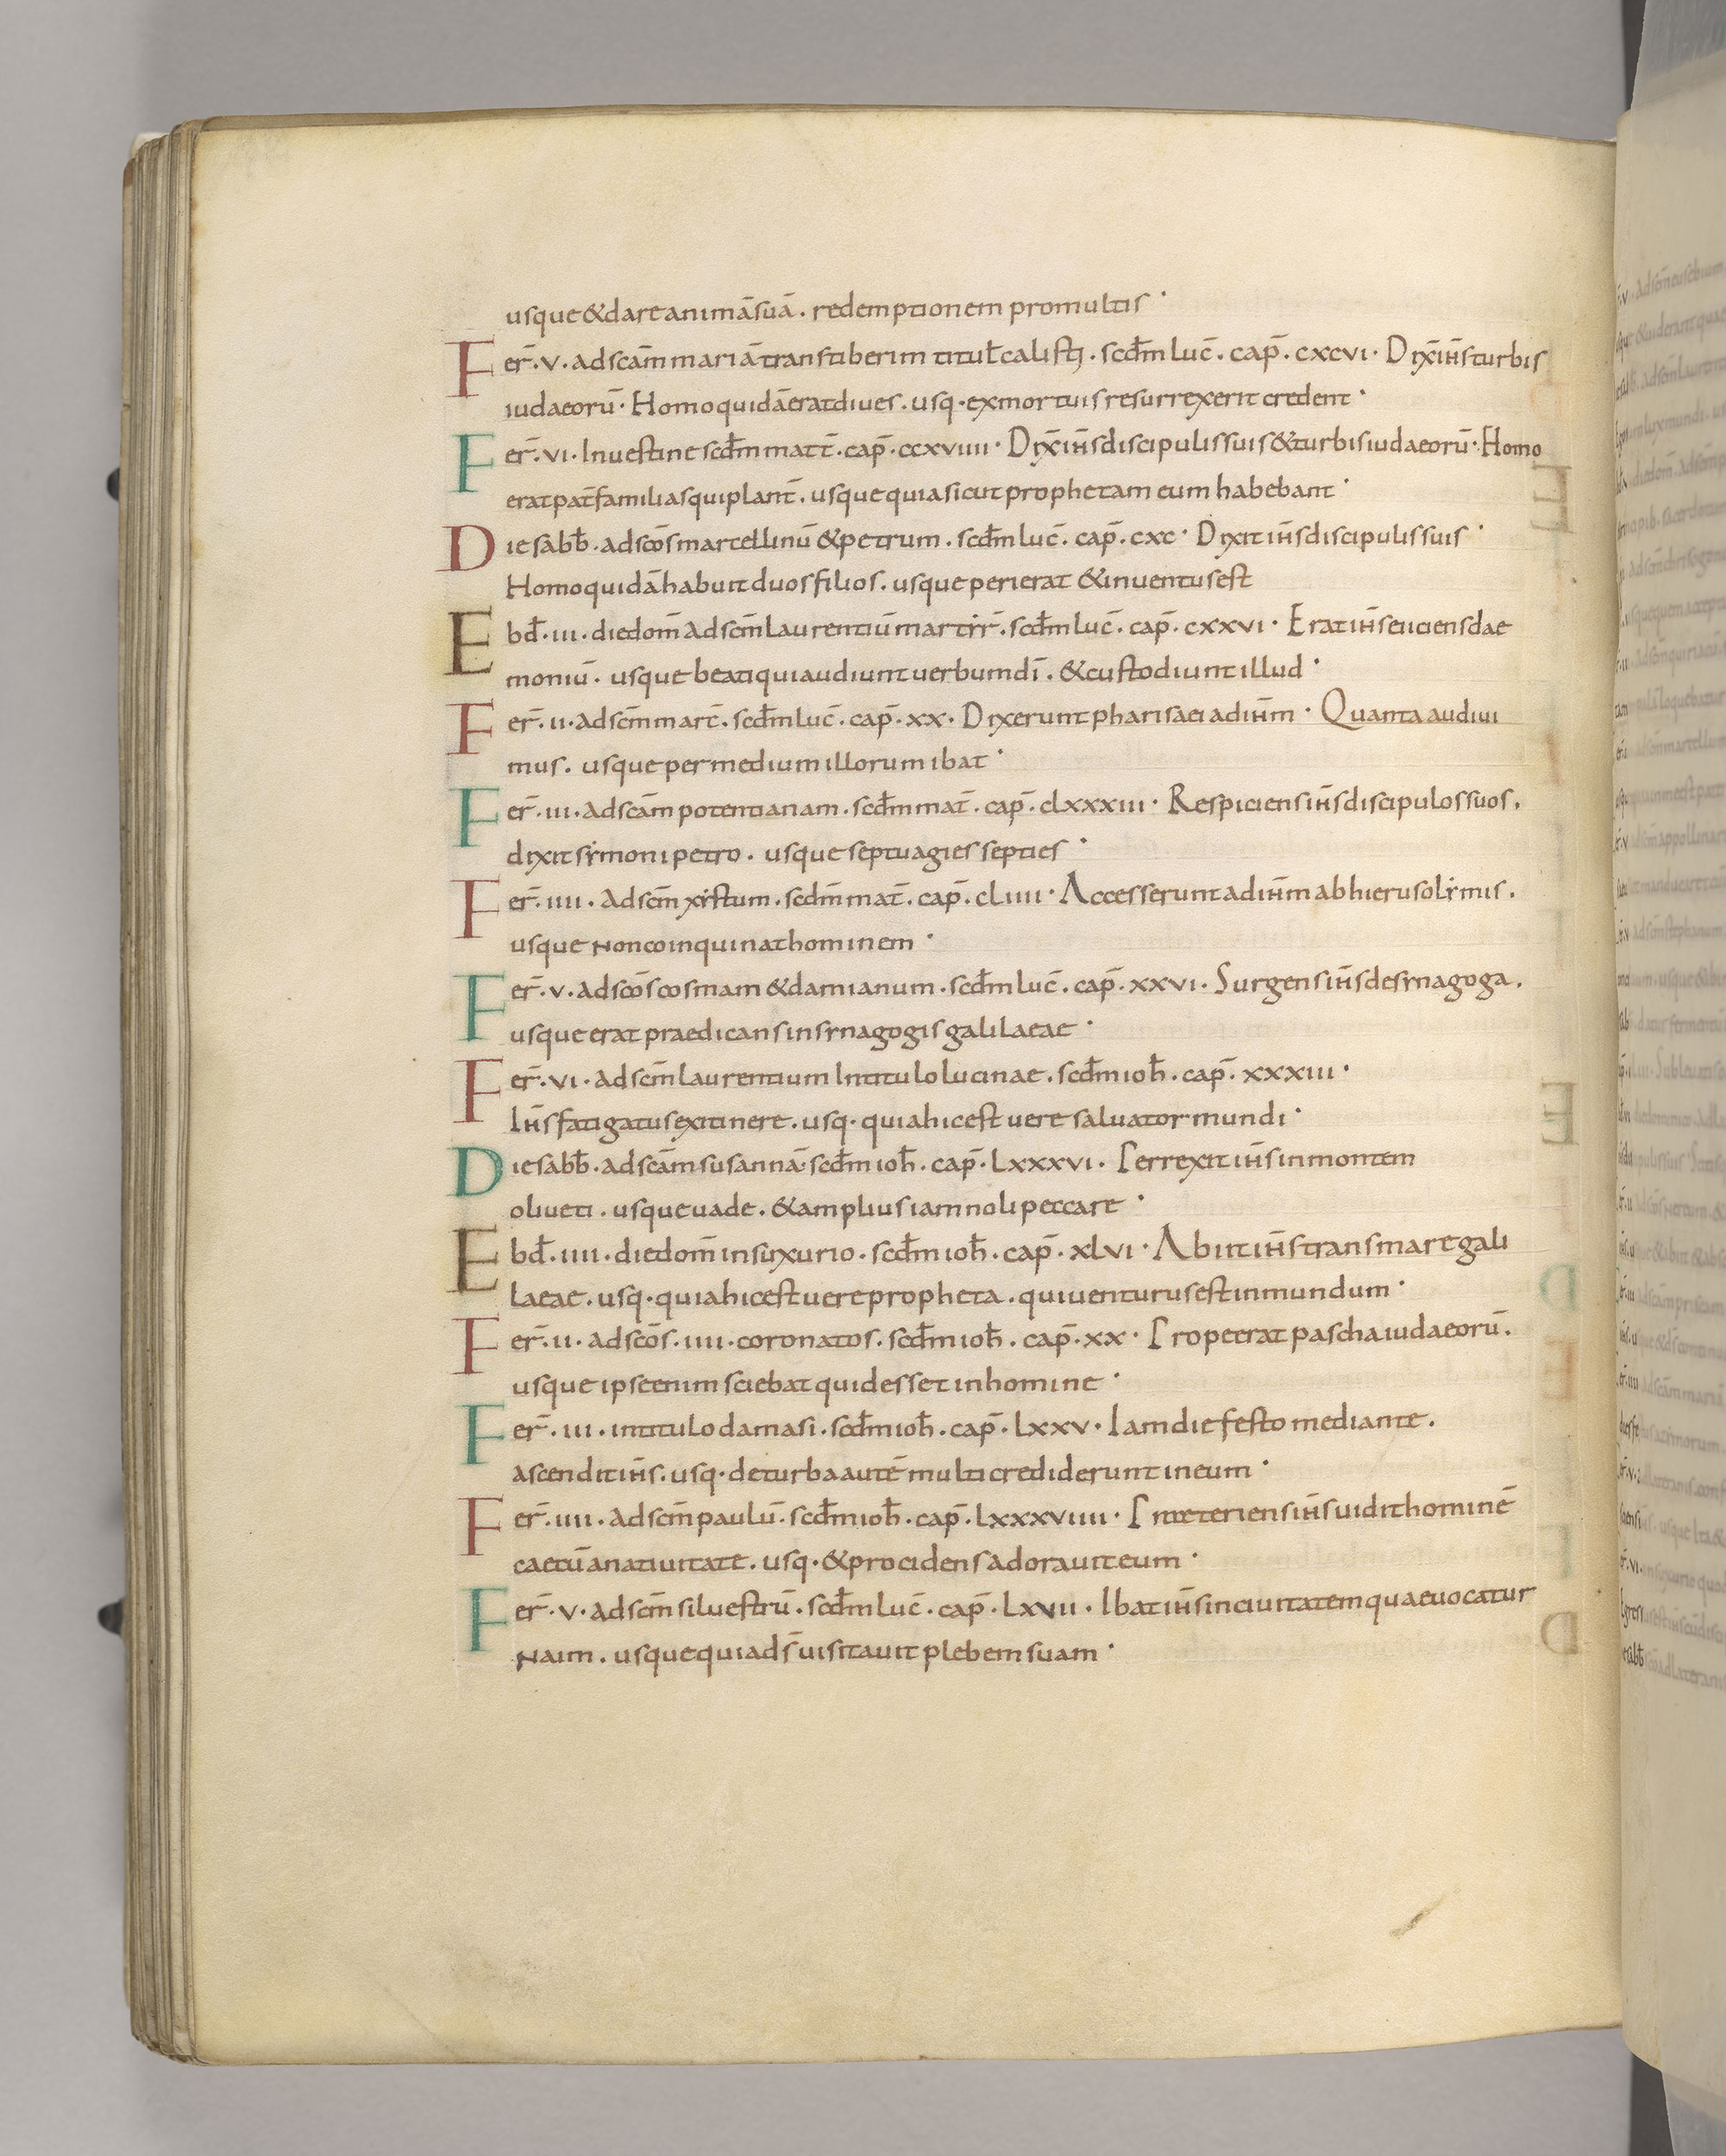 usque & dare animā suā . redemptionem pro multis ·
Fer̄ · v · ad sc̄am mariā transtiberim titul̄ calisti . sc̄dm luc̄ . cap̄ . cxcvi · Dix̄ ih̄s turbis
iudaeorū · Homo quidā erat diues . usq · ex mortuis resurrexerit credent ·
Fer̄ · vi · In uestine sc̄dm matt̄ . cap̄ · ccxviiii · Dix̄ ih̄s discipulis suis & turbis iudaeorū · Homo
erat pat̄familias qui plant̄ . usque quia sicut prophetam eum habebant ·
Die sabb̄ . ad sc̄os marcellinū & petrum . sc̄dm luc̄ . cap̄ . cxc · Dixit ih̄s discipulis suis ·
Homo quidā habuit duos filios . usque perierat & inuentus est
Ebd̄ · iii · die dom̄ ad sc̄m laurentiū martyr̄ . sc̄dm luc̄ . cap̄ . cxxvi · Erat ih̄s eiciens dae
moniū · usque beati qui audiunt uerbum dī . & custodiunt illud ·
Fer̄ · ii · ad sc̄m marc̄ . sc̄dm luc̄ . cap̄ · xx · Dixerunt pharisaei ad ih̄m · Quanta audiui
mus . usque per medium illorum ibat ·
Fer̄ · iii · ad sc̄am potentianam . sc̄dm mat̄ . cap̄ · clxxxiii · Respiciens ih̄s discipulos suos .
dixit symoni petro . usque septuagies septies ·
Fer̄ · iiii · ad sc̄m xystum . sc̄dm mat̄ . cap̄ . cliiii · Accesserunt ad ih̄m ab hierusolymis .
usque non coinquinat hominem ·
Fer̄ · v · ad sc̄os cosmam & damianum . sc̄dm luc̄ . cap̄ . xxvi · Surgens ih̄s de synagoga .
usque erat praedicans in synagogis galilaeae ·
Fer̄ · vi · ad sc̄m laurentium In titulo lucinae . sc̄dm ioh̄ . cap̄ . xxxiii ·
Ih̄s fatigatus ex itinere . usq · quia hic est uere saluator mundi ·
Die sabb̄ . ad sc̄am susannā · sc̄dm ioh̄ . cap̄ · lxxxvi · Perrexit ih̄s in montem
oliueti . usque uade . & amplius iam noli peccare ·
Ebd̄ · iiii · die dom̄ in suxurio . sc̄dm ioh̄ . cap̄ . xlvi · Abiit ih̄s trans mare gali
laeae . usq · quia hic est uere propheta . qui uenturus est in mundum ·
Fer̄ · ii · ad sc̄os · iiii · coronatos . sc̄dm ioh̄ . cap̄ · xx · Prope erat pascha iudaeorū .
usque ipse enim sciebat quid esset in homine ·
Fer̄ · iii · in titulo damasi . sc̄dm ioh̄ . cap̄ · lxxv · Iam die festo mediante .
ascendit ih̄s . usq · de turba autē multi crediderunt in eum ·
Fer̄ · iiii · ad sc̄m paulū · sc̄dm ioh̄ . cap̄ · lxxxviiii · Praeteriens ih̄s uidit hominē
caecū a natiuitate . usq · & procidens adorauit eum ·
Fer̄ · v · ad sc̄m siluestrū · sc̄dm luc̄ . cap̄ · lxvii · Ibat ih̄s in ciuitatem quae uocatur
Naim . usque quia ds̄ uisitauit plebem suam ·